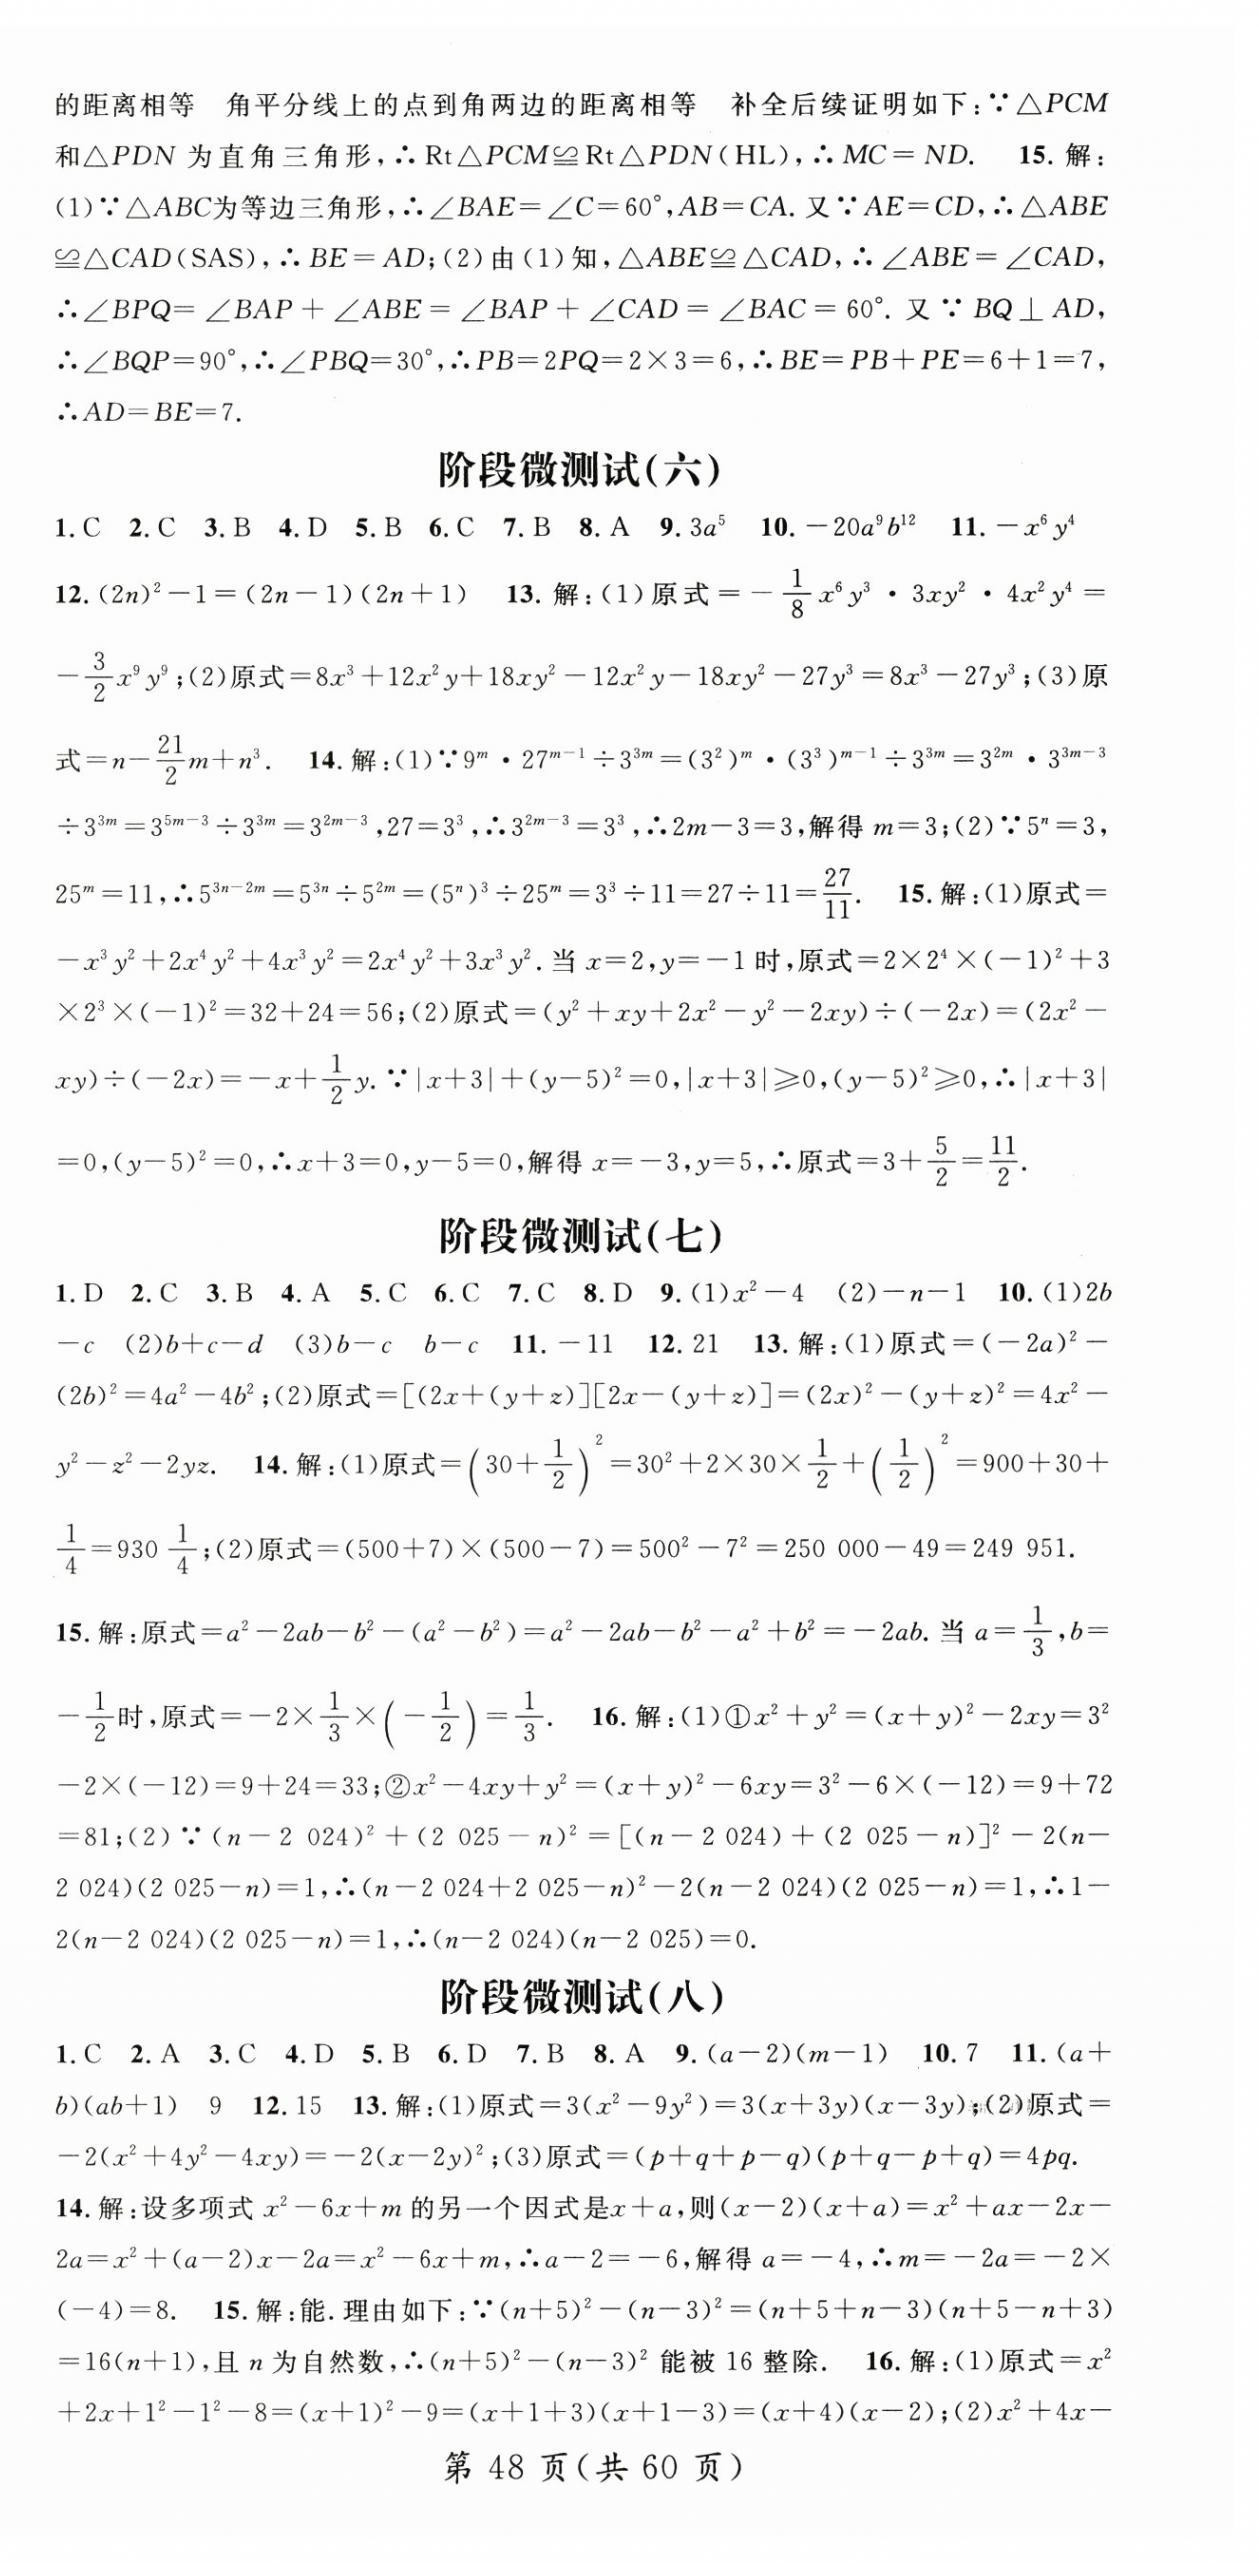 的距离相等　角平分线上的点到角两边的距离相等　补全后续证明如下:∵△PCM
和△PDN 为直角三角形,∴Rt△PCM≌Rt△PDN(HL),∴MC=ND.　15. 解:
(1)∵△ABC为等边三角形,∴∠BAE=∠C=60°,AB=CA. 又∵AE=CD,∴△ABE
≌△CAD(SAS),∴BE=AD;(2)由(1)知,△ABE≌△CAD,∴∠ABE=∠CAD,
∴∠BPQ=∠BAP+∠ABE=∠BAP+∠CAD=∠BAC=60°. 又∵BQ⊥AD,
∴∠BQP=90°,∴∠PBQ=30°,∴PB=2PQ=2×3=6,∴BE=PB+PE=6+1=7,
∴AD=BE=7.
阶段微测试(六)
1. C　2. C　3. B　4. D　5. B　6. C　7. B　8. A　9. 3a⁵　10. −20a⁹b¹²　11. −x⁶y⁴
12. (2n)²−1=(2n−1)(2n+1)　13. 解:(1)原式=−1/8 x⁶y³·3xy²·4x²y⁴=
−3/2 x⁹y⁹;(2)原式=8x³+12x²y+18xy²−12x²y−18xy²−27y³=8x³−27y³;(3)原
式=n−21/2 m+n³.　14. 解:(1)∵9ᵐ·27ᵐ⁻¹÷3³ᵐ=(3²)ᵐ·(3³)ᵐ⁻¹÷3³ᵐ=3²ᵐ·3³ᵐ⁻³
÷3³ᵐ=3⁵ᵐ⁻³÷3³ᵐ=3²ᵐ⁻³,27=3³,∴3²ᵐ⁻³=3³,∴2m−3=3,解得 m=3;(2)∵5ⁿ=3,
25ᵐ=11,∴5³ⁿ⁻²ᵐ=5³ⁿ÷5²ᵐ=(5ⁿ)³÷25ᵐ=3³÷11=27÷11=27/11.　15. 解:(1)原式=
−x³y²+2x⁴y²+4x³y²=2x⁴y²+3x³y². 当 x=2,y=−1 时,原式=2×2⁴×(−1)²+3
×2³×(−1)²=32+24=56;(2)原式=(y²+xy+2x²−y²−2xy)÷(−2x)=(2x²−
xy)÷(−2x)=−x+1/2 y. ∵|x+3|+(y−5)²=0,|x+3|≥0,(y−5)²≥0,∴|x+3|
=0,(y−5)²=0,∴x+3=0,y−5=0,解得 x=−3,y=5,∴原式=3+5/2=11/2.
阶段微测试(七)
1. D　2. C　3. B　4. A　5. C　6. C　7. C　8. D　9. (1)x²−4　(2)−n−1　10. (1)2b
−c　(2)b+c−d　(3)b−c　b−c　11. −11　12. 21　13. 解:(1)原式=(−2a)²−
(2b)²=4a²−4b²;(2)原式=[(2x+(y+z)][2x−(y+z)]=(2x)²−(y+z)²=4x²−
y²−z²−2yz.　14. 解:(1)原式=(30+1/2)²=30²+2×30×1/2+(1/2)²=900+30+
1/4=930 1/4;(2)原式=(500+7)×(500−7)=500²−7²=250 000−49=249 951.
15. 解:原式=a²−2ab−b²−(a²−b²)=a²−2ab−b²−a²+b²=−2ab. 当 a=1/3,b=
−1/2时,原式=−2×1/3×(−1/2)=1/3.　16. 解:(1)①x²+y²=(x+y)²−2xy=3²
−2×(−12)=9+24=33;②x²−4xy+y²=(x+y)²−6xy=3²−6×(−12)=9+72
=81;(2)∵(n−2 024)²+(2 025−n)²=[(n−2 024)+(2 025−n)]²−2(n−
2 024)(2 025−n)=1,∴(n−2 024+2 025−n)²−2(n−2 024)(2 025−n)=1,∴1−
2(n−2 024)(2 025−n)=1,∴(n−2 024)(n−2 025)=0.
阶段微测试(八)
1. C　2. A　3. C　4. D　5. B　6. D　7. B　8. A　9. (a−2)(m−1)　10. 7　11. (a+
b)(ab+1)　9　12. 15　13. 解:(1)原式=3(x²−9y²)=3(x+3y)(x−3y);(2)原式=
−2(x²+4y²−4xy)=−2(x−2y)²;(3)原式=(p+q+p−q)(p+q−p+q)=4pq.
14. 解:设多项式 x²−6x+m 的另一个因式是x+a,则(x−2)(x+a)=x²+ax−2x−
2a=x²+(a−2)x−2a=x²−6x+m,∴a−2=−6,解得 a=−4,∴m=−2a=−2×
(−4)=8.　15. 解:能. 理由如下:∵(n+5)²−(n−3)²=(n+5+n−3)(n+5−n+3)
=16(n+1),且 n 为自然数,∴(n+5)²−(n−3)² 能被 16 整除.　16. 解:(1)原式=x²
+2x+1²−1²−8=(x+1)²−9=(x+1+3)(x+1−3)=(x+4)(x−2);(2)x²+4x−
第 48 页(共 60 页)